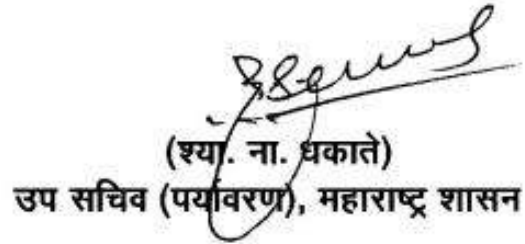 (श्या. ना. धकाते)
उप सचिव (पर्यावरण), महाराष्ट्र शासन